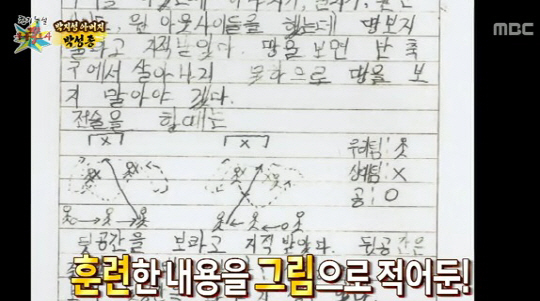 박지성 아버지
박성종
MBC
원 아웃사이드를 했는데 땅보지
말라고 지적받았다. 땅을 보면 난 축
구에서 살아나지 못하므로 땅을 보
지 말아야 겠다.
전술을 할때는
x x
우리팀:
상대팀: X
공: O
뒷공간을 보라고 지적 받았다. 뒷공간은
훈련한 내용을 그림으로 적어둔!